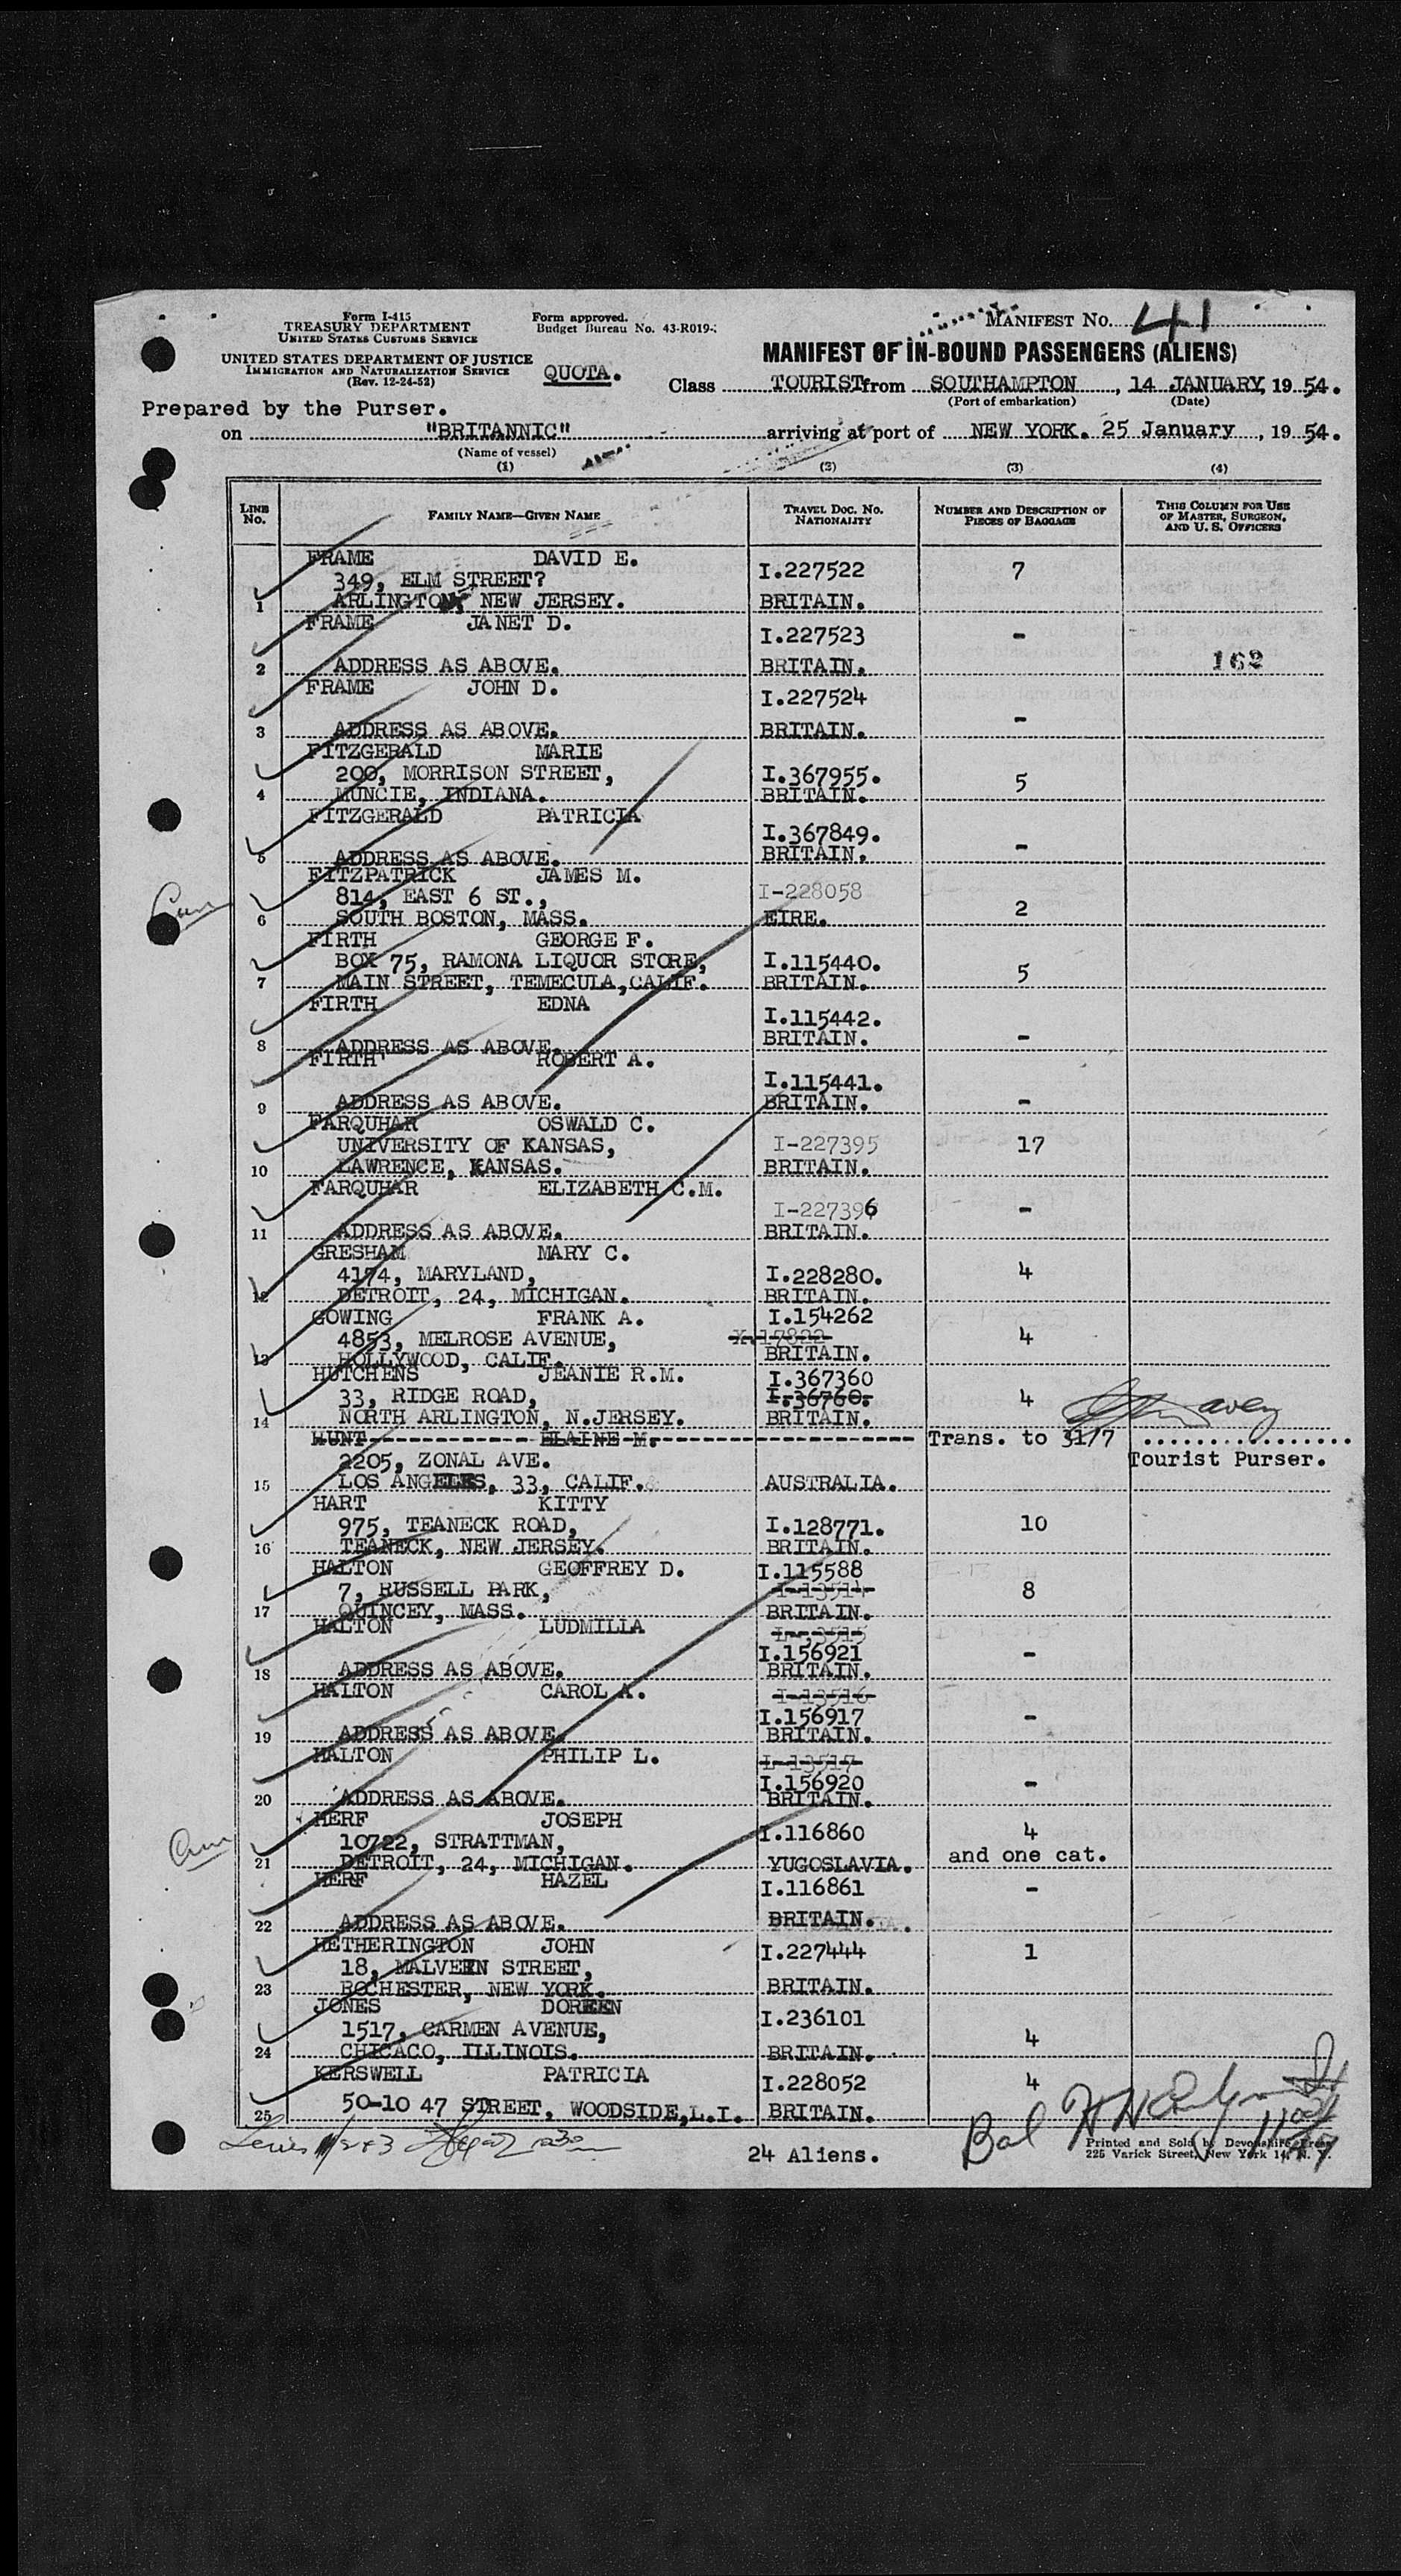 Form I-415
TREASURY DEPARTMENT
UNITED STATES CUSTOMS SERVICE
UNITED STATES DEPARTMENT OF JUSTICE
IMMIGRATION AND NATURALIZATION SERVICE
(Rev. 12-24-52)
Form approved.
Budget Bureau No. 43-R019-
QUOTA.
MANIFEST NO. 41
MANIFEST OF IN-BOUND PASSENGERS (ALIENS)
Class TOURIST from SOUTHAMPTON, 14 JANUARY, 19 54.
(Port of embarkation) (Date)
Prepared by the Purser.
on "BRITANNIC" arriving at port of NEW YORK. 25 January, 19 54.
(Name of vessel)
(1) (2) (3) (4)
LINE No. FAMILY NAME—GIVEN NAME TRAVEL DOC. NO. NATIONALITY NUMBER AND DESCRIPTION OF PIECES OF BAGGAGE THIS COLUMN FOR USE OF MASTER, SURGEON, AND U. S. OFFICERS
FRAME DAVID E.
349, ELM STREET? I.227522 7
1 ARLINGTON, NEW JERSEY. BRITAIN.
FRAME JANET D.
I.227523 -
2 ADDRESS AS ABOVE. BRITAIN. 162
FRAME JOHN D.
I.227524 -
3 ADDRESS AS ABOVE. BRITAIN.
FITZGERALD MARIE
200, MORRISON STREET, I.367955. 5
4 MUNCIE, INDIANA. BRITAIN.
FITZGERALD PATRICIA
I.367849. -
5 ADDRESS AS ABOVE. BRITAIN.
FITZPATRICK JAMES M.
814, EAST 6 ST., I-228058 2
6 SOUTH BOSTON, MASS. EIRE.
FIRTH GEORGE F.
BOX 75, RAMONA LIQUOR STORE, I.115440. 5
7 MAIN STREET, TEMECULA, CALIF. BRITAIN.
FIRTH EDNA
I.115442. -
8 ADDRESS AS ABOVE. BRITAIN.
FIRTH ROBERT A.
I.115441. -
9 ADDRESS AS ABOVE. BRITAIN.
FARQUHAR OSWALD C.
UNIVERSITY OF KANSAS, I-227395 17
10 LAWRENCE, KANSAS. BRITAIN.
FARQUHAR ELIZABETH C.M.
I-227396 -
11 ADDRESS AS ABOVE. BRITAIN.
GRESHAM MARY C.
4174, MARYLAND, I.228280. 4
12 DETROIT, 24, MICHIGAN. BRITAIN.
GOWING FRANK A. I.154262
4853, MELROSE AVENUE, X.17822 4
13 HOLLYWOOD, CALIF. BRITAIN.
HUTCHENS JEANIE R.M. I.367360
33, RIDGE ROAD, I.36760. 4
14 NORTH ARLINGTON, N.JERSEY. BRITAIN.
HUNT ELAINE M. Trans. to 31/7
2205, ZONAL AVE. Tourist Purser.
15 LOS ANGELES, 33, CALIF. AUSTRALIA.
HART KITTY
975, TEANECK ROAD, I.128771. 10
16 TEANECK, NEW JERSEY. BRITAIN.
HALTON GEOFFREY D. I.115588
7, RUSSELL PARK, I-13514 8
17 QUINCEY, MASS. BRITAIN.
HALTON LUDMILLA I-13515
I.156921 -
18 ADDRESS AS ABOVE. BRITAIN.
HALTON CAROL A. I-13516
I.156917 -
19 ADDRESS AS ABOVE. BRITAIN.
HALTON PHILIP L. I-13517
I.156920 -
20 ADDRESS AS ABOVE. BRITAIN.
HERF JOSEPH
10722, STRATTMAN, I.116860 4
21 DETROIT, 24, MICHIGAN. YUGOSLAVIA. and one cat.
HERF HAZEL I.116861 -
22 ADDRESS AS ABOVE. BRITAIN.
HETHERINGTON JOHN I.227444 1
18, MALVERN STREET,
23 ROCHESTER, NEW YORK. BRITAIN.
JONES DOREEN I.236101
1517, CARMEN AVENUE, 4
24 CHICACO, ILLINOIS. BRITAIN.
KERSWELL PATRICIA I.228052 4
25 50-10 47 STREET, WOODSIDE, L.I. BRITAIN.
24 Aliens.
Bal
Printed and Sold by Devonshire Press
225 Varick Street, New York 14, N. Y.